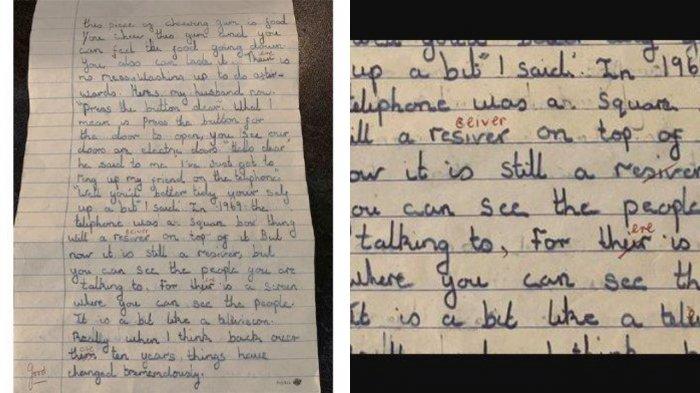 this piece of chewing gum is good
You chew this gum and you
can feel the food going down
you also can taste it. Their ere is
no mess, washing up to do after-
wards. Heres my husband now.
"Press the button dear. What I
mean is press the button for
the door to open, you see our
doors are electric doors. "Hello dear"
he said to me I've just got to
ring up my friend on the telephone"
"Well you'd better tidy your self
up a bit" I said. In 1969 the
telephone was a square box thing
will a resiver on top of it But
ceiver
now it is still a resiver, but
you can see the people you are
talking to, For their is a screen
ere
where you can see the people.
It is a bit like a television.
Really when I think back over
them ten years things have
changed tremendously.
good
up a bit" I said. In 196
elephone was a square
ill a resiver on top of
ceiver
ow it is still a resiver
ou can see the people
talking to, For their is
ere
where you can see th
It is a bit like a tele